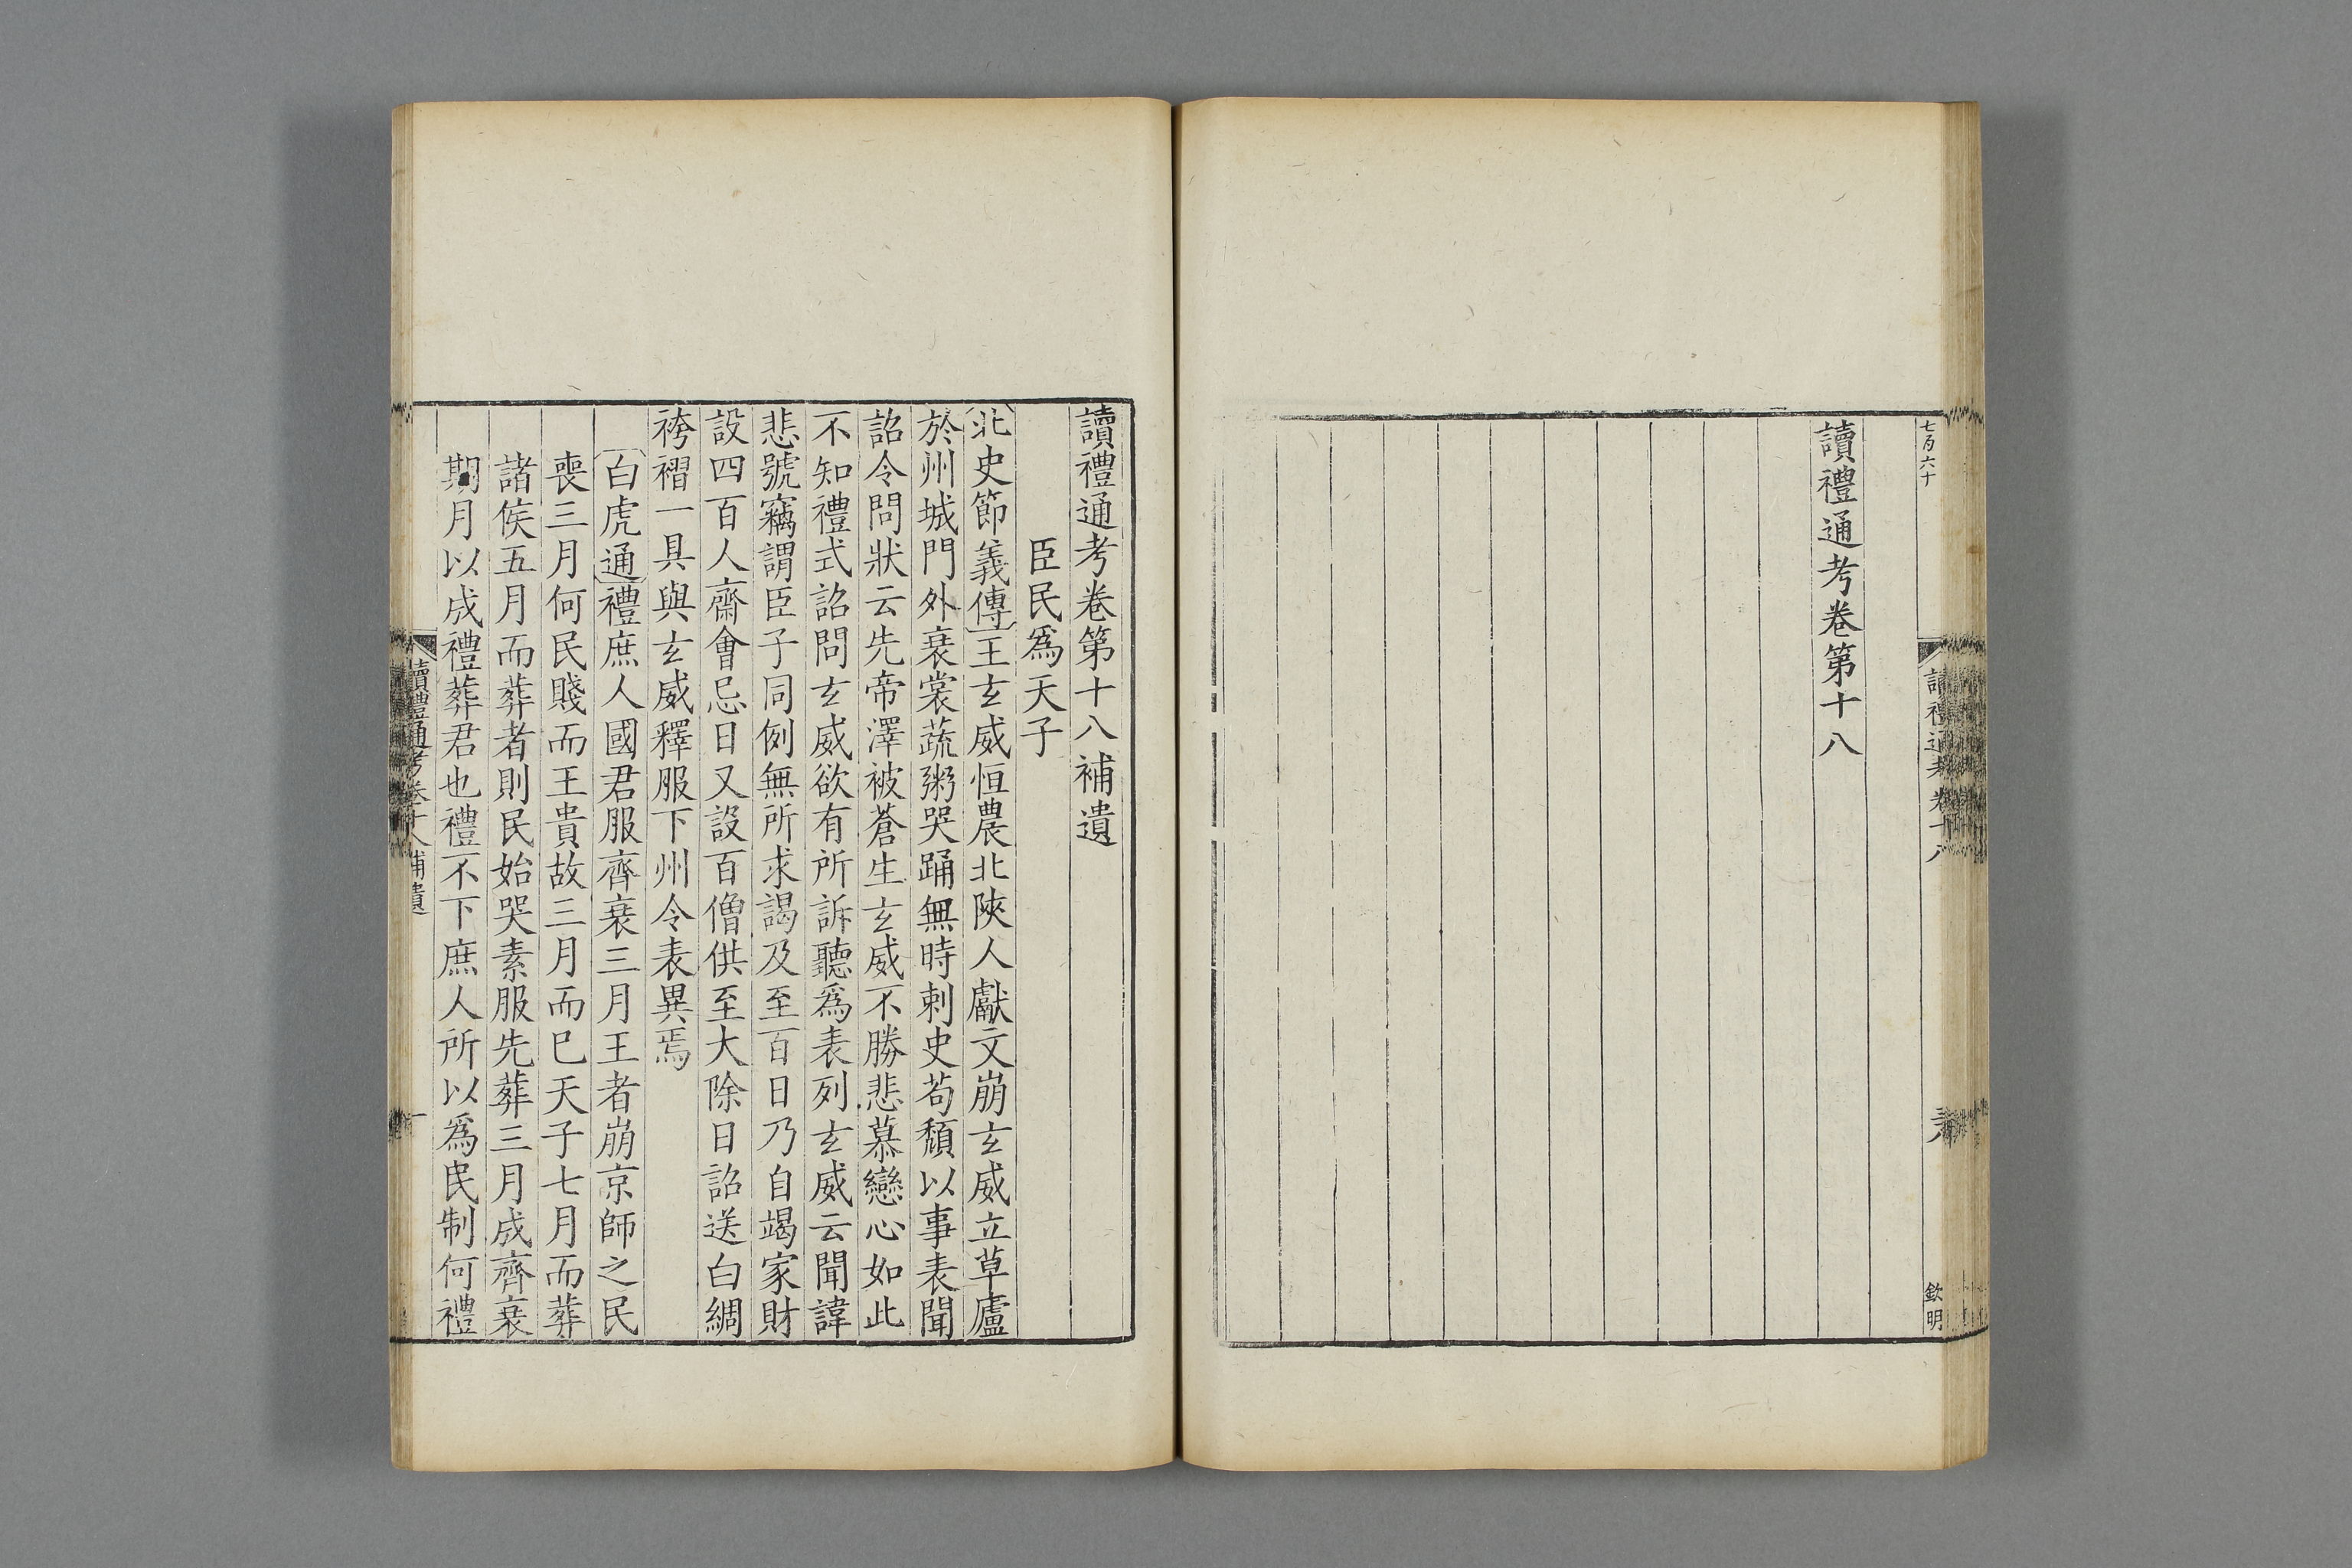 七百六十
讀禮通考卷十八
欽明
讀禮通考卷第十八
讀禮通考卷第十八補遺
臣民爲天子
北史節義傳王玄威恒農北陝人獻文崩玄威立草廬
於州城門外衰裳蔬粥哭踊無時刺史苟頹以事表聞
詔令問狀云先帝澤被蒼生玄威不勝悲慕戀心如此
不知禮式詔問玄威欲有所訴聽爲表列玄威云聞諱
悲號竊謂臣子同例無所求謁及至百日乃自竭家財
設四百人齋會忌日又設百僧供至大除日詔送白綢
袴褶一具與玄威釋服下州令表異焉
白虎通禮庶人國君服齊衰三月王者崩京師之民
喪三月何民賤而王貴故三月而已天子七月而葬
諸侯五月而葬者則民始哭素服先葬三月成齊衰
期月以成禮葬君也禮不下庶人所以爲民制何禮
讀禮通考卷十八補遺
一